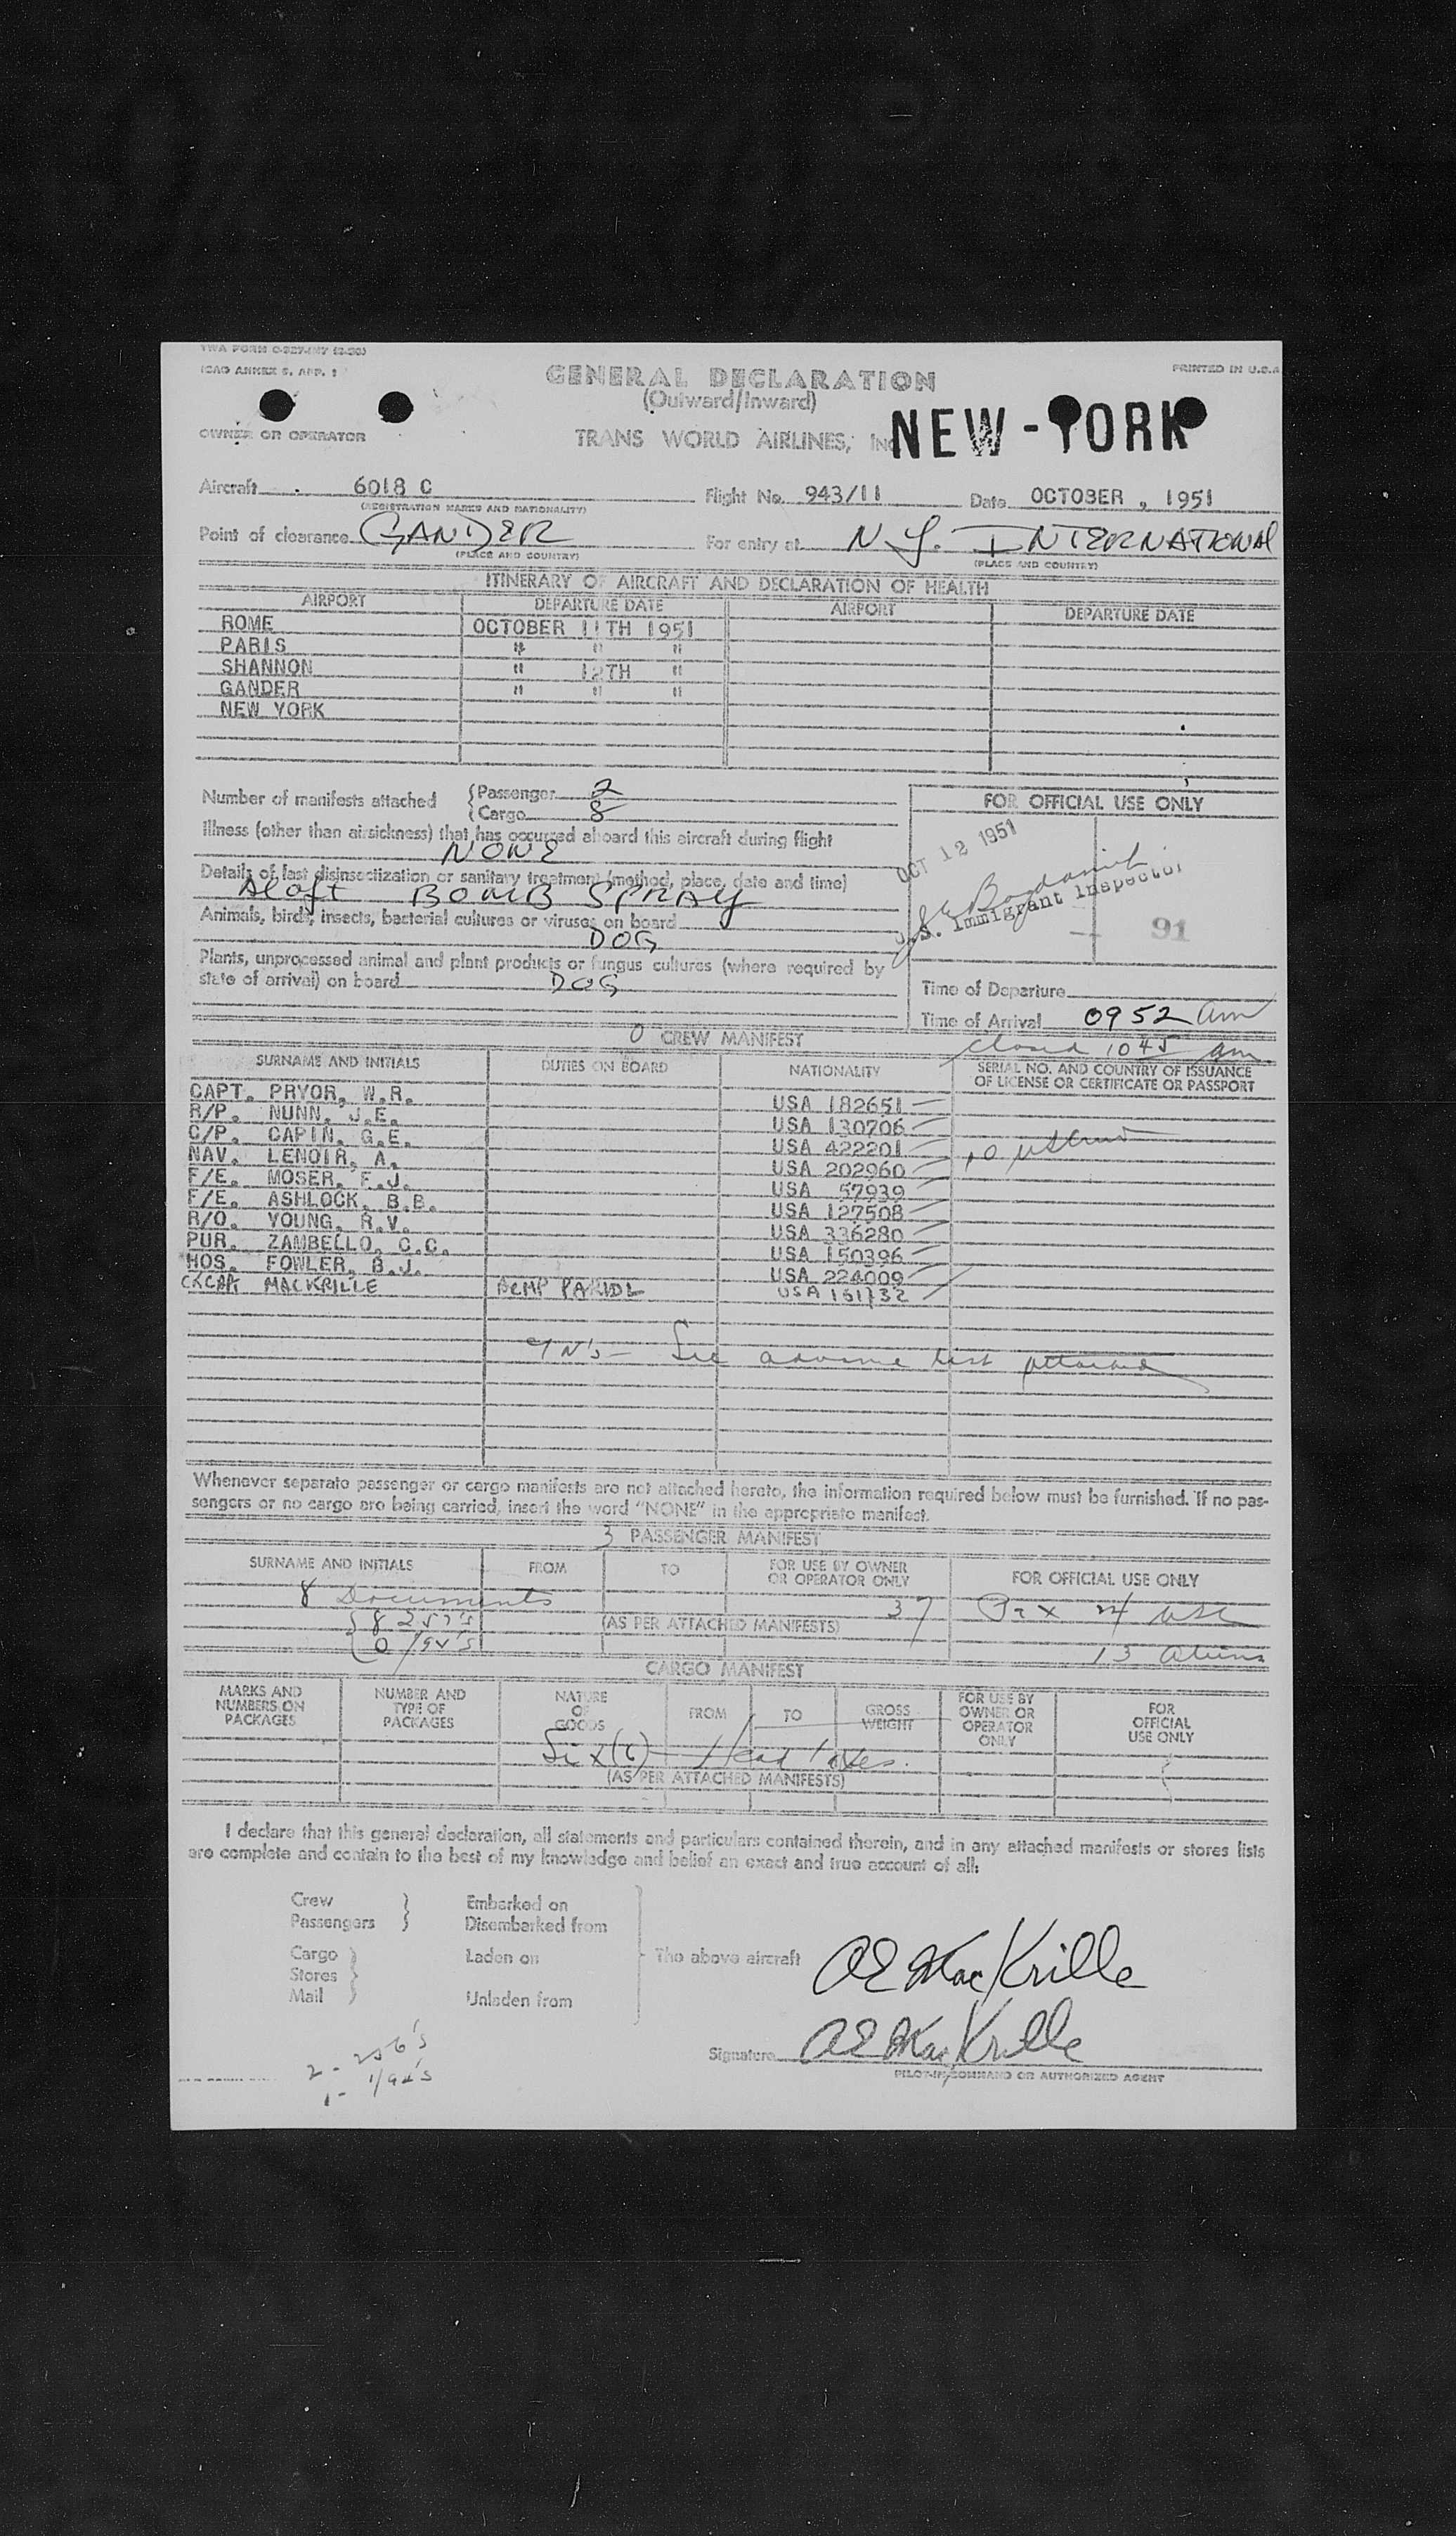 TWA FORM
ICAO ANNEX 9, APP. 1
PRINTED IN U.S.A.
GENERAL DECLARATION
(Outward/Inward)
OWNER OR OPERATOR
TRANS WORLD AIRLINES, INC
NEW-YORK
Aircraft 6018 C
Flight No. 943/11
Date OCTOBER , 1951
(REGISTRATION MARKS AND NATIONALITY)
Point of clearance GANDER
For entry at N.Y. INTERNATIONAL
(PLACE AND COUNTRY)
(PLACE AND COUNTRY)
ITINERARY OF AIRCRAFT AND DECLARATION OF HEALTH
AIRPORT DEPARTURE DATE AIRPORT DEPARTURE DATE
ROME OCTOBER 11TH 1951
PARIS " " "
SHANNON " 12TH "
GANDER " " "
NEW YORK
Number of manifests attached
{Passenger 2
{Cargo 8
Illness (other than airsickness) that has occurred aboard this aircraft during flight
NONE
Details of last disinsectization or sanitary treatment (method, place, date and time)
Aloft BOMB SPRAY
Animals, birds, insects, bacterial cultures or viruses on board
DOG
Plants, unprocessed animal and plant products or fungus cultures (where required by
state of arrival) on board DOG
FOR OFFICIAL USE ONLY
OCT 12 1951
U.S. Immigrant Inspector
91
Time of Departure
Time of Arrival 0952 am
closed 1045 am
0 CREW MANIFEST
SURNAME AND INITIALS DUTIES ON BOARD NATIONALITY
SERIAL NO. AND COUNTRY OF ISSUANCE
OF LICENSE OR CERTIFICATE OR PASSPORT
CAPT. PRYOR, W.R. USA 182651
R/P. NUNN, J.E. USA 130706
C/P. CAPIN, G.E. USA 422201
NAV. LENOIR, A. USA 202960
F/E. MOSER, F.J. USA 57939
F/E. ASHLOCK, B.B. USA 127508
R/O. YOUNG, R.V. USA 336280
PUR. ZAMBELLO, C.C. USA 150396
HOS. FOWLER, B.J. USA 224009
CKCAPT MACKRILLE USA 161732
See advance list attached
Whenever separate passenger or cargo manifests are not attached hereto, the information required below must be furnished. If no pas-
sengers or no cargo are being carried, insert the word "NONE" in the appropriate manifest.
3 PASSENGER MANIFEST
SURNAME AND INITIALS FROM TO
FOR USE BY OWNER
OR OPERATOR ONLY
FOR OFFICIAL USE ONLY
8 Documents
{8 257's
37 Pax 24 USC
(AS PER ATTACHED MANIFESTS)
0 1/94's
13 aliens
CARGO MANIFEST
MARKS AND
NUMBERS ON
PACKAGES
NUMBER AND
TYPE OF
PACKAGES
NATURE
OF
GOODS
FROM
TO
GROSS
WEIGHT
FOR USE BY
OWNER OR
OPERATOR
ONLY
FOR
OFFICIAL
USE ONLY
Six (6) Head taxes.
(AS PER ATTACHED MANIFESTS)
I declare that this general declaration, all statements and particulars contained therein, and in any attached manifests or stores lists
are complete and contain to the best of my knowledge and belief an exact and true account of all:
Crew
Passengers
Embarked on
Disembarked from
Cargo
Stores
Mail
Laden on
Unladen from
The above aircraft
AE MacKrille
Signature AE MacKrille
PILOT-IN-COMMAND OR AUTHORIZED AGENT
2 - 256's
1 - 1/94's